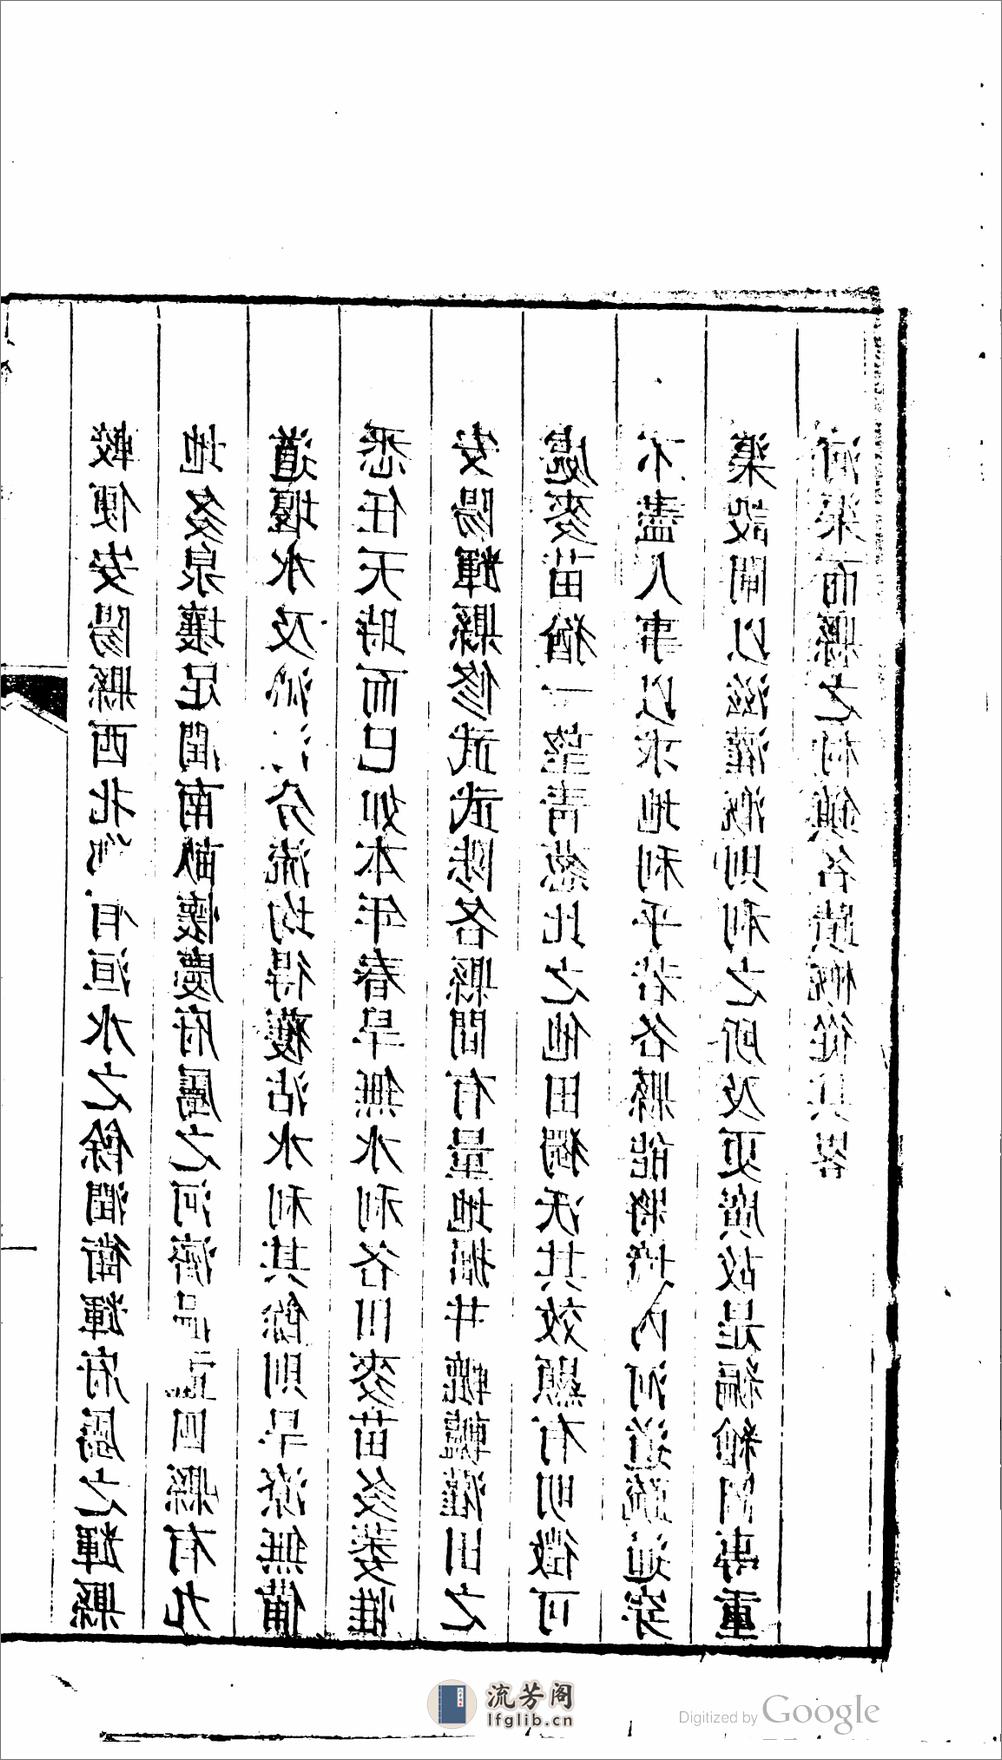 較便安陽縣西北有洹水之餘潤衛輝府屬之輝縣
地多泉壤足潤南畝懷慶府屬之河濟溫孟四縣有九
道堰水及沁分流均得獲沾水利其餘則旱潦無備
悉任天時而已如本年春旱無水利各田麥苗多萎惟
安陽輝縣修武武陟各縣間有量地掘井轆轤灌田之
處麥苗猶一望青葱比之他田獨沃其效顯有明徵可
不盡人事以求地利乎若各縣能將境內河道疏通穿
渠設閘以滋灌溉則利之所及更廣故是編繪圖專重
河渠而縣之村鎮名蹟概從其畧
流芳阁
lfglib.cn
Digitized by Google